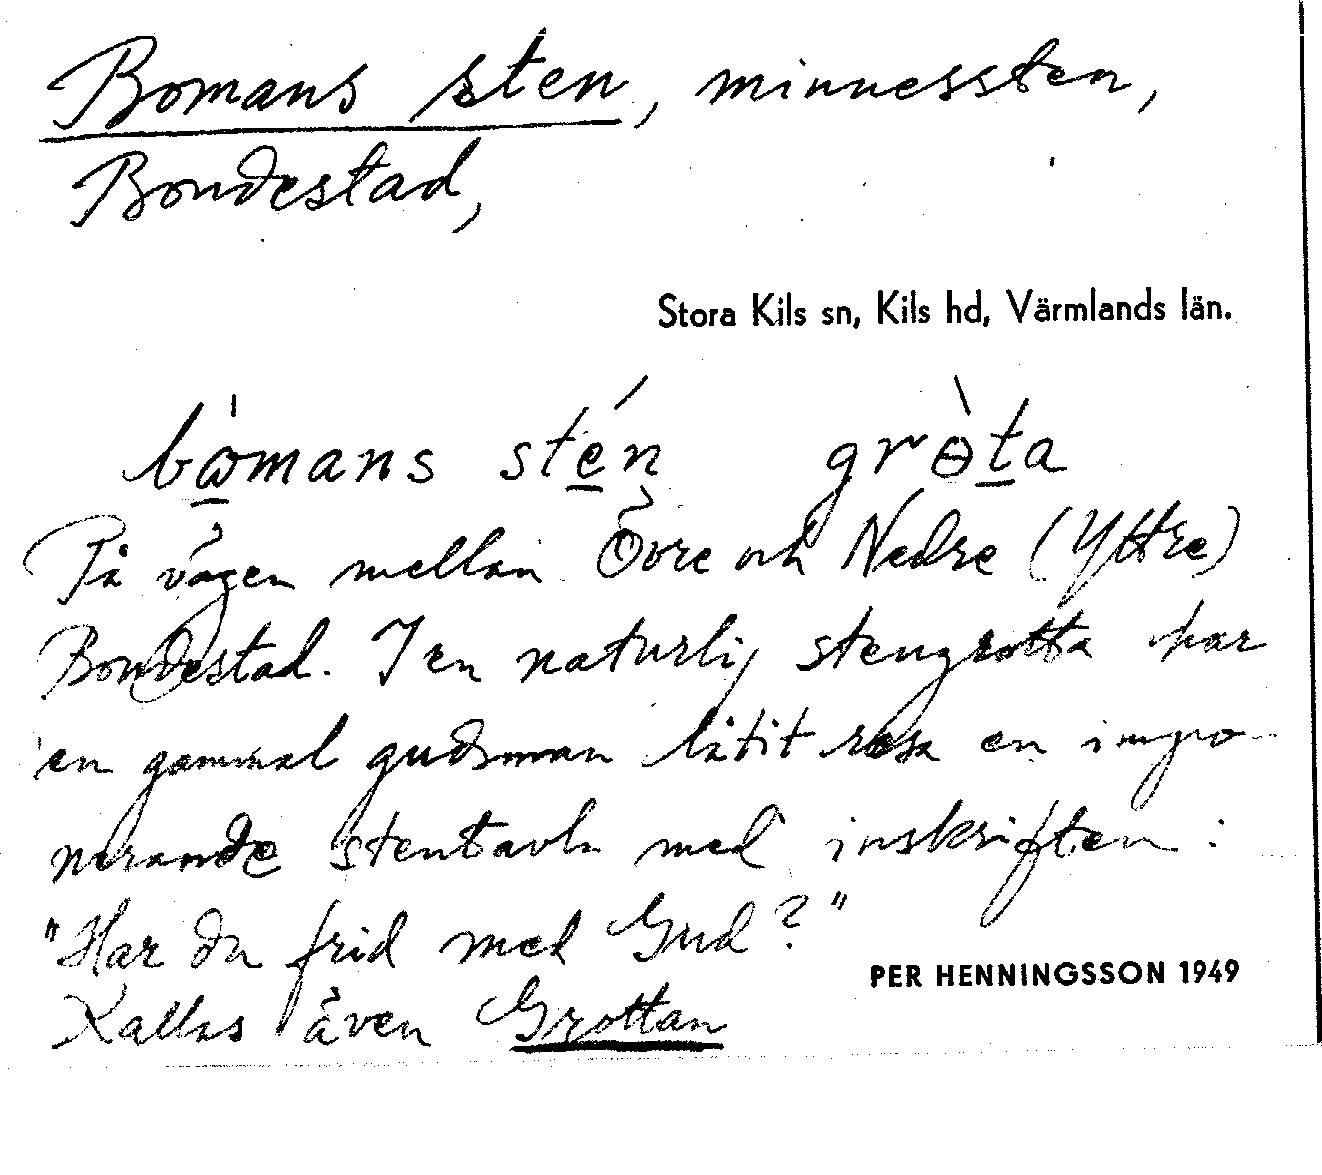 Bomans sten, minnessten,
Bondestad,
Stora Kils sn, Kils hd, Värmlands län.
bòmans stén grɵ̀ta
På vägen mellan Övre och Nedre (Yttre)
Bondestad. I en naturlig stengrotta har
en gammal gudsman låtit resa en impo-
nerande stentavla med inskriften:
"Har du frid med Gud?"
PER HENNINGSSON 1949
Kallas även Grottan